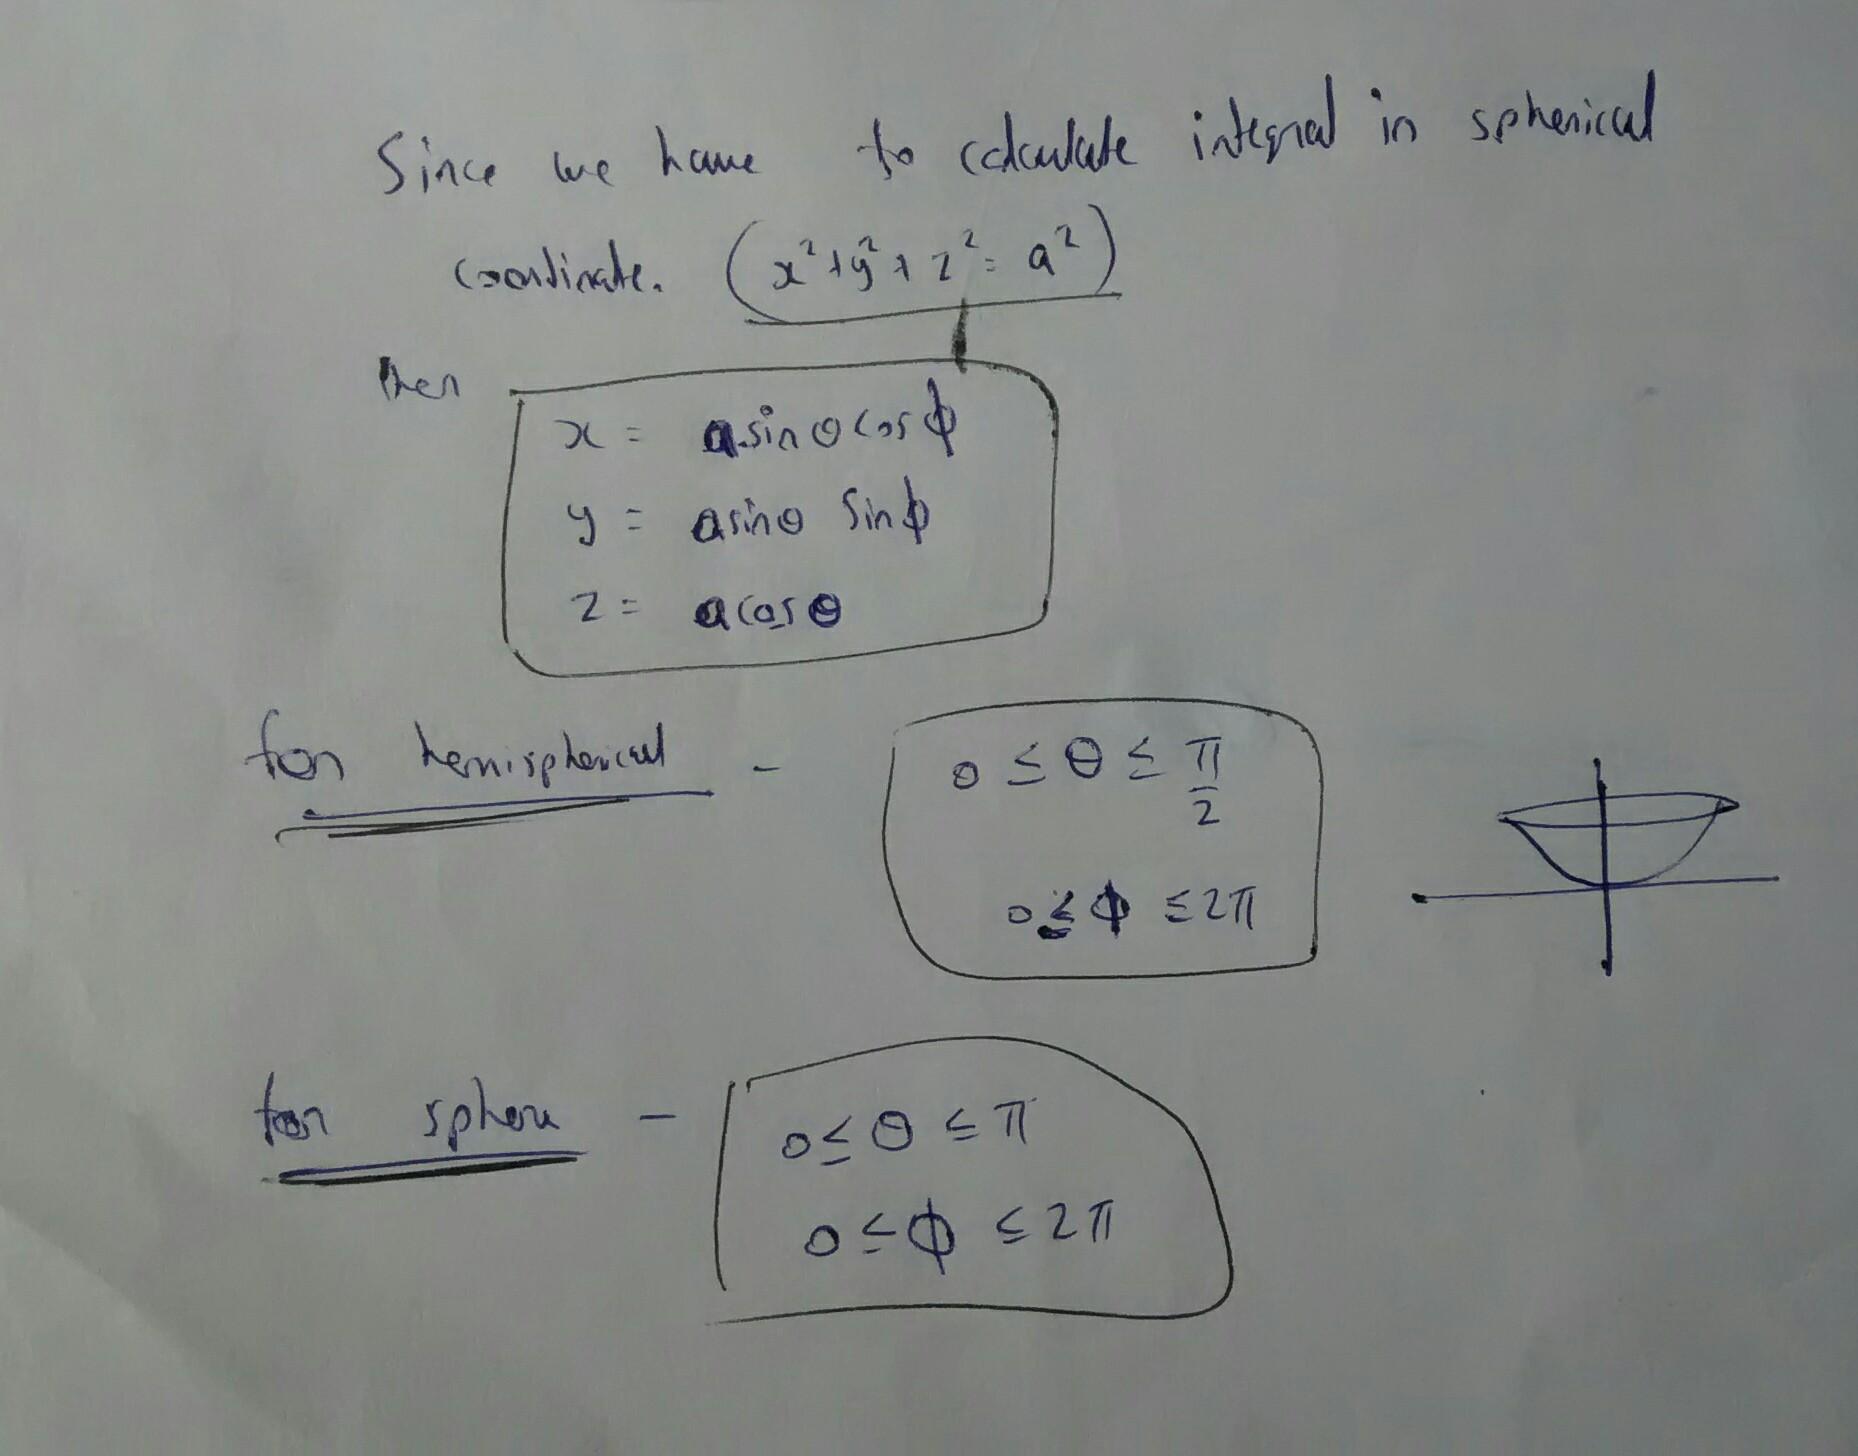 Since we have to calculate integral in spherical
coordinate. (x²+y²+z²=a²)
then
x = a sinθ cosϕ
y = a sinθ sinϕ
z = a cosθ
for hemispherical - 0 ≤ θ ≤ π/2
0 ≤ ϕ ≤ 2π
for sphere - 0 ≤ θ ≤ π
0 ≤ ϕ ≤ 2π